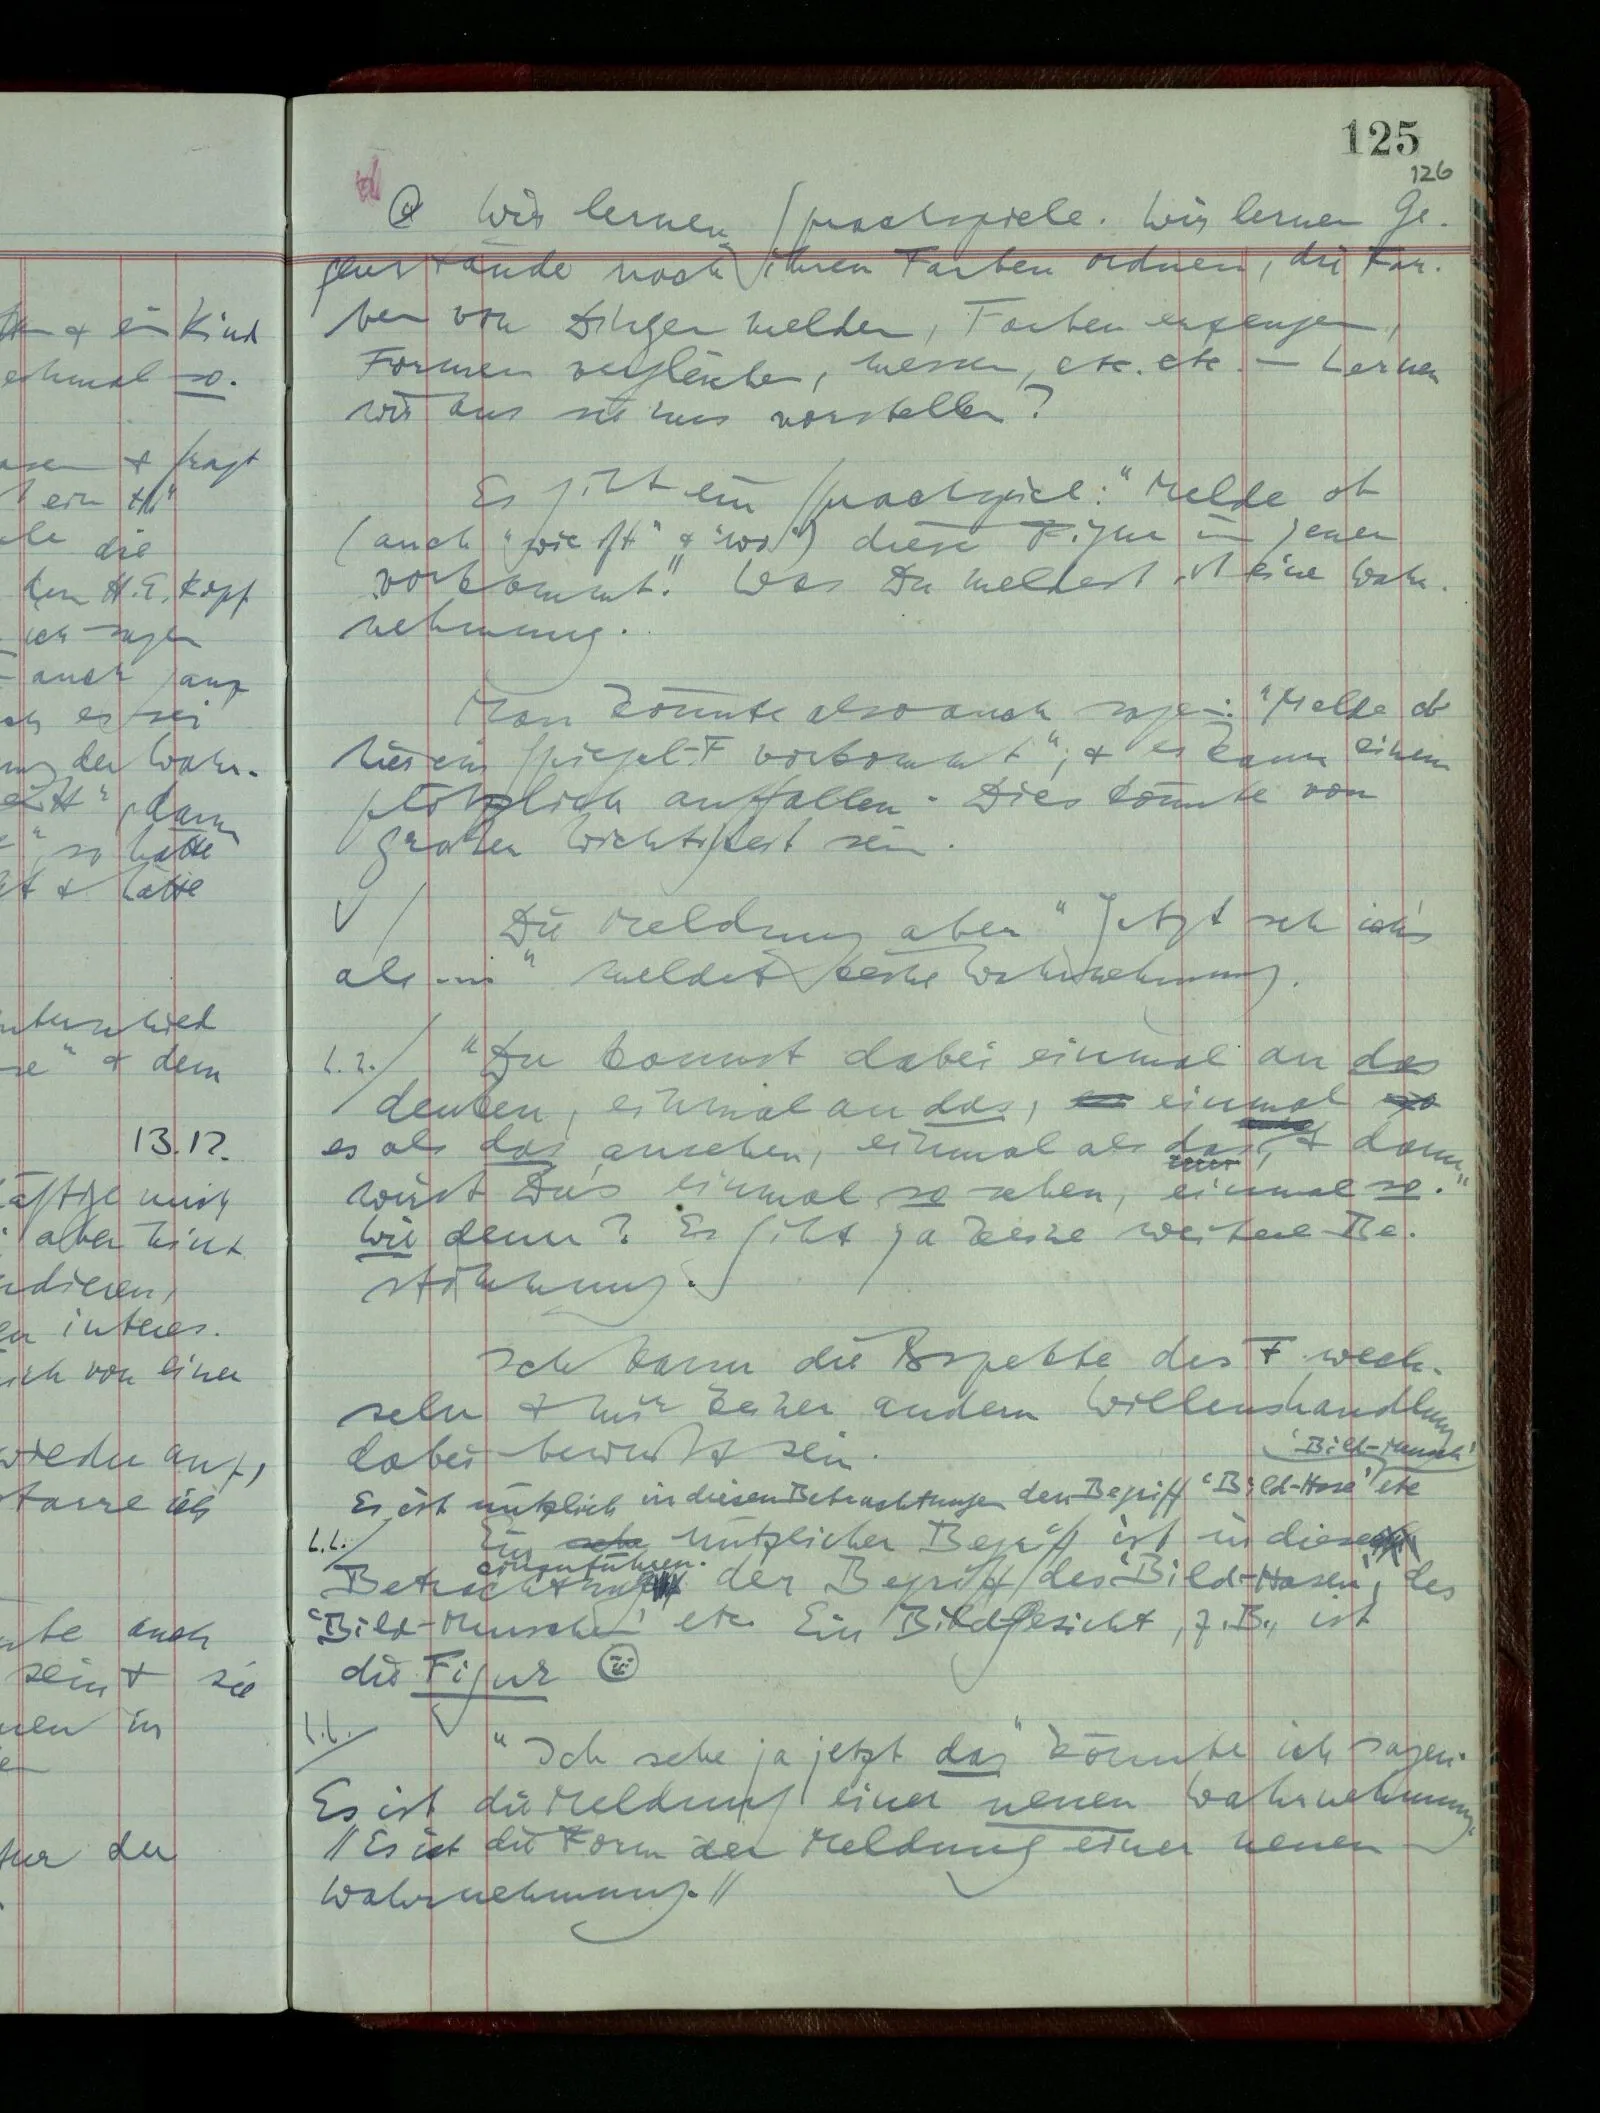 & ein Kind
echmal so.
& fragt
ein
die
den H.E. Kopf
ich sagen
auch auf
es sei
der Wahr-
dann
so hätte
& hätte
nterschied
se" & dem
13.12.
mich
aber nicht
ndieren,
interes-
ich von einer
wieder auf,
starre ich
auch
sein & sie
in
der
125
126
Wir lernen Sprachspiele. Wir lernen Ge-
genstände nach ihren Farben ordnen, die Far-
ben von Dingen melden, Farben erzeugen,
Formen vergleichen, messen, etc. etc. — Lernen
wir auch sie uns vorstellen?
Es gibt ein Sprachspiel: "Melde ob
(auch "wie oft" & "wo") diese Figur in jener
vorkommt." Was Du meldest ist eine Wahr-
nehmung.
Man könnte also auch sagen: "Melde ob
hier ein Spiegel-F vorkommt", & es kann einem
plötzlich auffallen. Dies könnte von
großer Wichtigkeit sein.
Die Meldung aber "Jetzt seh ich's
als ..." meldet keine Wahrnehmung.
"Du kannst dabei einmal an das
denken, einmal an das, einmal
es als das ansehen, einmal als das, & dann
wirst Du's einmal so sehen, einmal so."
Wie denn? Es gibt ja keine weitere Be-
stimmung.
Ich kann die Aspekte des F wech-
seln & mir keiner andern Willenshandlung
dabei bewußt sein.
'Bild-Mensch'
Es ist nützlich in diesen Betrachtungen den Begriff 'Bild-Hase' etc
Ein nützlicher Begriff ist in dieser
einzuführen.
Betrachtung der Begriff des 'Bild-Hasen', des
'Bild-Menschen' etc. Ein Bildgesicht, z.B., ist
die Figur
"Ich sehe ja jetzt das" könnte ich sagen.
Es ist die Meldung einer neuen Wahrnehmung.
// Es ist die Form der Meldung einer neuen
Wahrnehmung. //